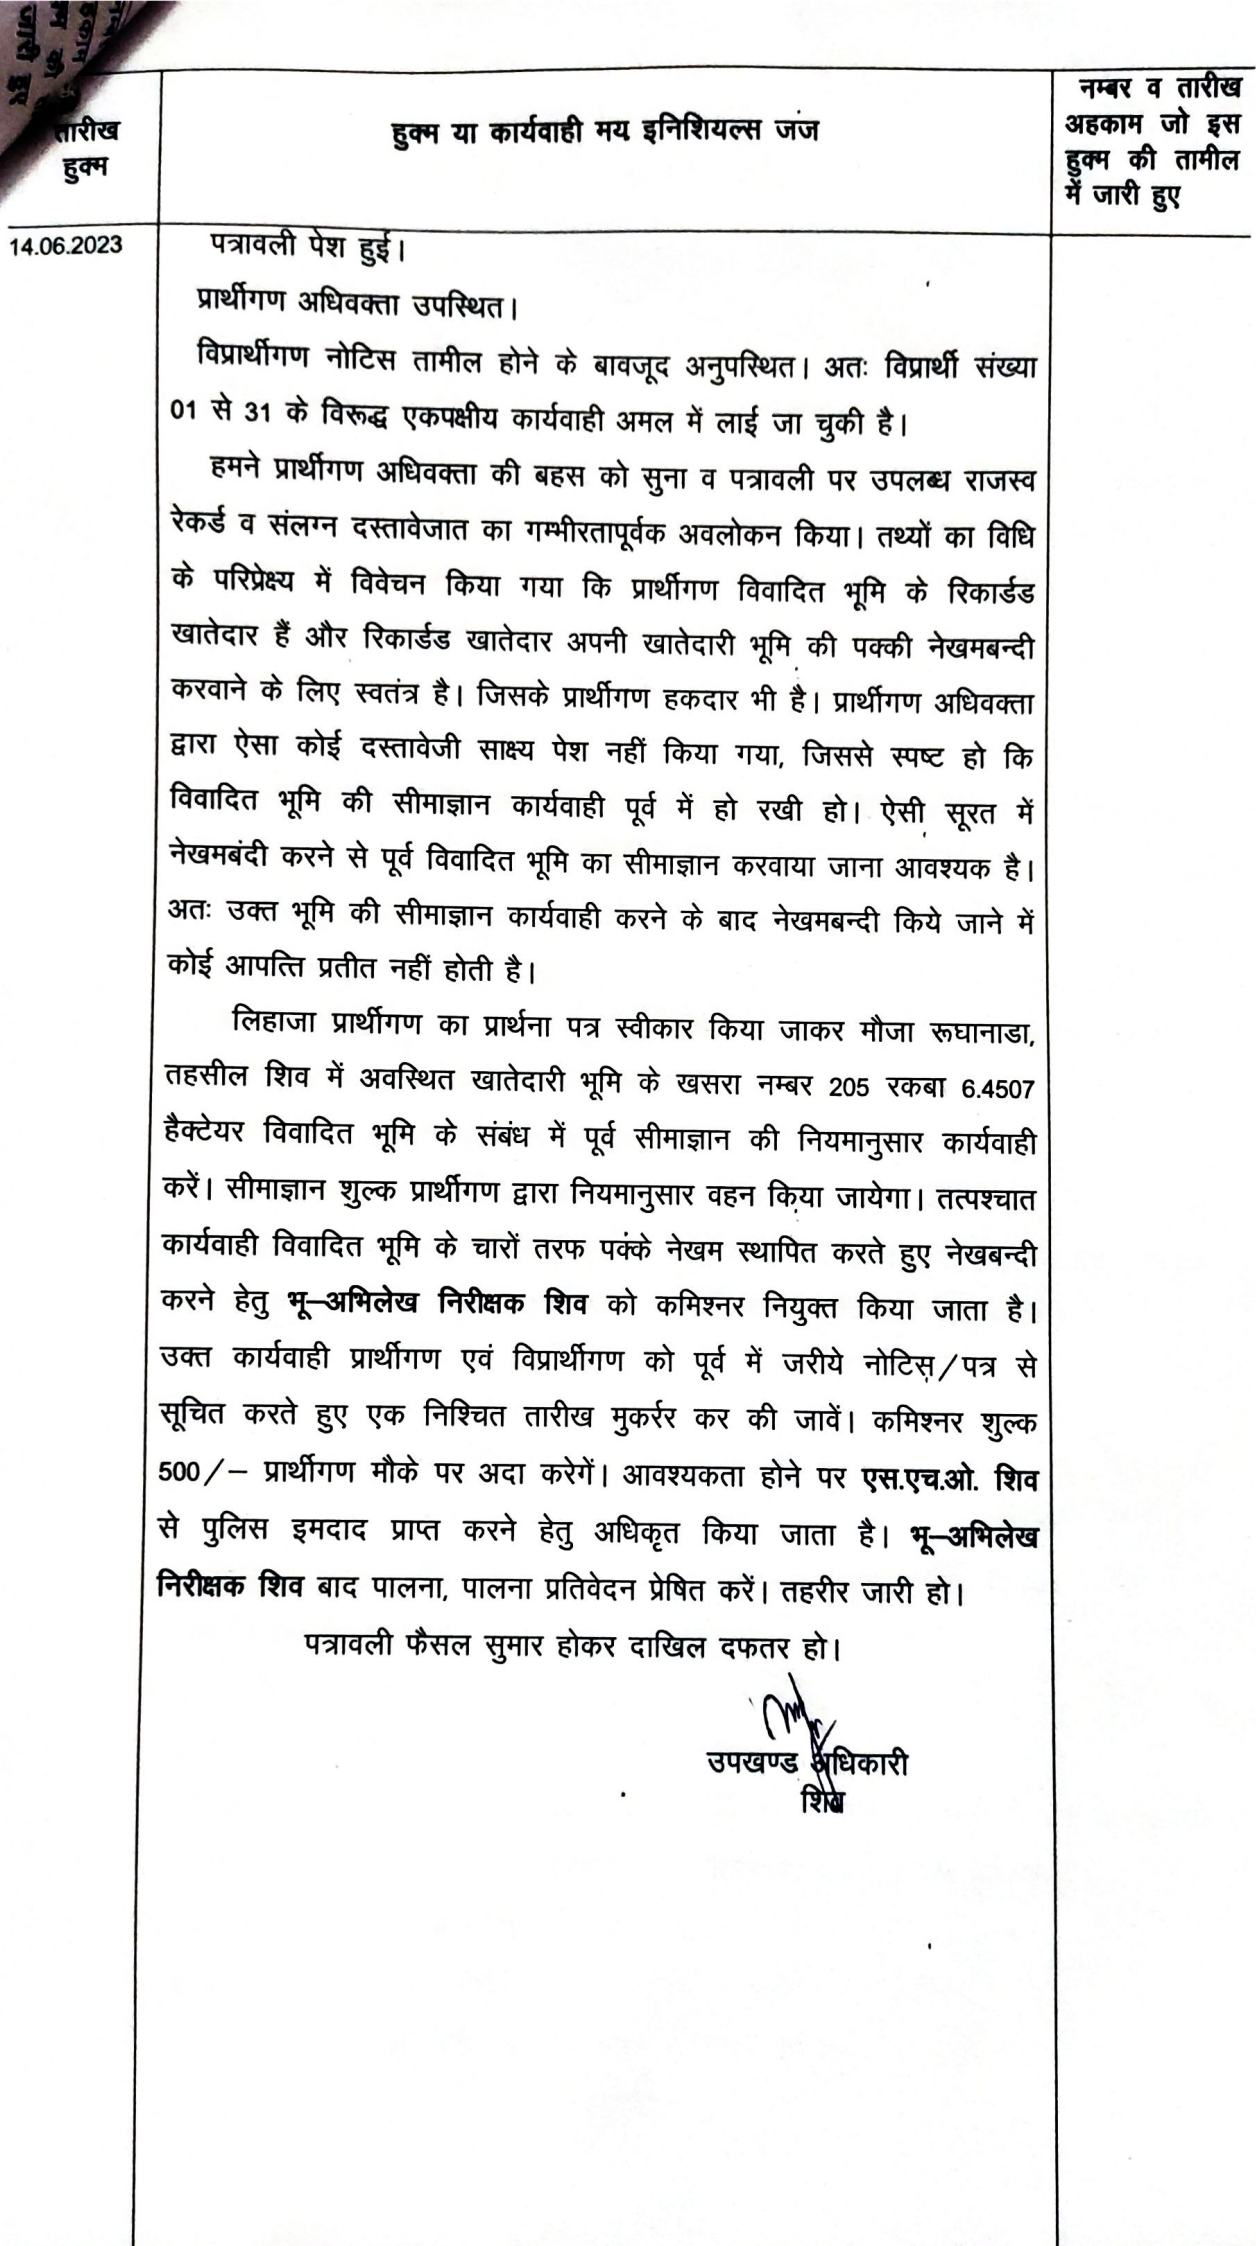 तारीख
हुक्म
हुक्म या कार्यवाही मय इनिशियल्स जज
नम्बर व तारीख
अहकाम जो इस
हुक्म की तामील
में जारी हुए
14.06.2023
पत्रावली पेश हुई।
प्रार्थीगण अधिवक्ता उपस्थित।
विप्रार्थीगण नोटिस तामील होने के बावजूद अनुपस्थित। अतः विप्रार्थी संख्या
01 से 31 के विरूद्ध एकपक्षीय कार्यवाही अमल में लाई जा चुकी है।
हमने प्रार्थीगण अधिवक्ता की बहस को सुना व पत्रावली पर उपलब्ध राजस्व
रेकर्ड व संलग्न दस्तावेजात का गम्भीरतापूर्वक अवलोकन किया। तथ्यों का विधि
के परिप्रेक्ष्य में विवेचन किया गया कि प्रार्थीगण विवादित भूमि के रिकार्डड
खातेदार हैं और रिकार्डड खातेदार अपनी खातेदारी भूमि की पक्की नेखमबन्दी
करवाने के लिए स्वतंत्र है। जिसके प्रार्थीगण हकदार भी है। प्रार्थीगण अधिवक्ता
द्वारा ऐसा कोई दस्तावेजी साक्ष्य पेश नहीं किया गया, जिससे स्पष्ट हो कि
विवादित भूमि की सीमाज्ञान कार्यवाही पूर्व में हो रखी हो। ऐसी सूरत में
नेखमबंदी करने से पूर्व विवादित भूमि का सीमाज्ञान करवाया जाना आवश्यक है।
अतः उक्त भूमि की सीमाज्ञान कार्यवाही करने के बाद नेखमबन्दी किये जाने में
कोई आपत्ति प्रतीत नहीं होती है।
लिहाजा प्रार्थीगण का प्रार्थना पत्र स्वीकार किया जाकर मौजा रूघानाडा,
तहसील शिव में अवस्थित खातेदारी भूमि के खसरा नम्बर 205 रकबा 6.4507
हैक्टेयर विवादित भूमि के संबंध में पूर्व सीमाज्ञान की नियमानुसार कार्यवाही
करें। सीमाज्ञान शुल्क प्रार्थीगण द्वारा नियमानुसार वहन किया जायेगा। तत्पश्चात
कार्यवाही विवादित भूमि के चारों तरफ पक्के नेखम स्थापित करते हुए नेखबन्दी
करने हेतु भू–अभिलेख निरीक्षक शिव को कमिश्नर नियुक्त किया जाता है।
उक्त कार्यवाही प्रार्थीगण एवं विप्रार्थीगण को पूर्व में जरीये नोटिस/पत्र से
सूचित करते हुए एक निश्चित तारीख मुकर्रर कर की जावें। कमिश्नर शुल्क
500/– प्रार्थीगण मौके पर अदा करेगें। आवश्यकता होने पर एस.एच.ओ. शिव
से पुलिस इमदाद प्राप्त करने हेतु अधिकृत किया जाता है। भू–अभिलेख
निरीक्षक शिव बाद पालना, पालना प्रतिवेदन प्रेषित करें। तहरीर जारी हो।
पत्रावली फैसल सुमार होकर दाखिल दफतर हो।
उपखण्ड अधिकारी
शिव